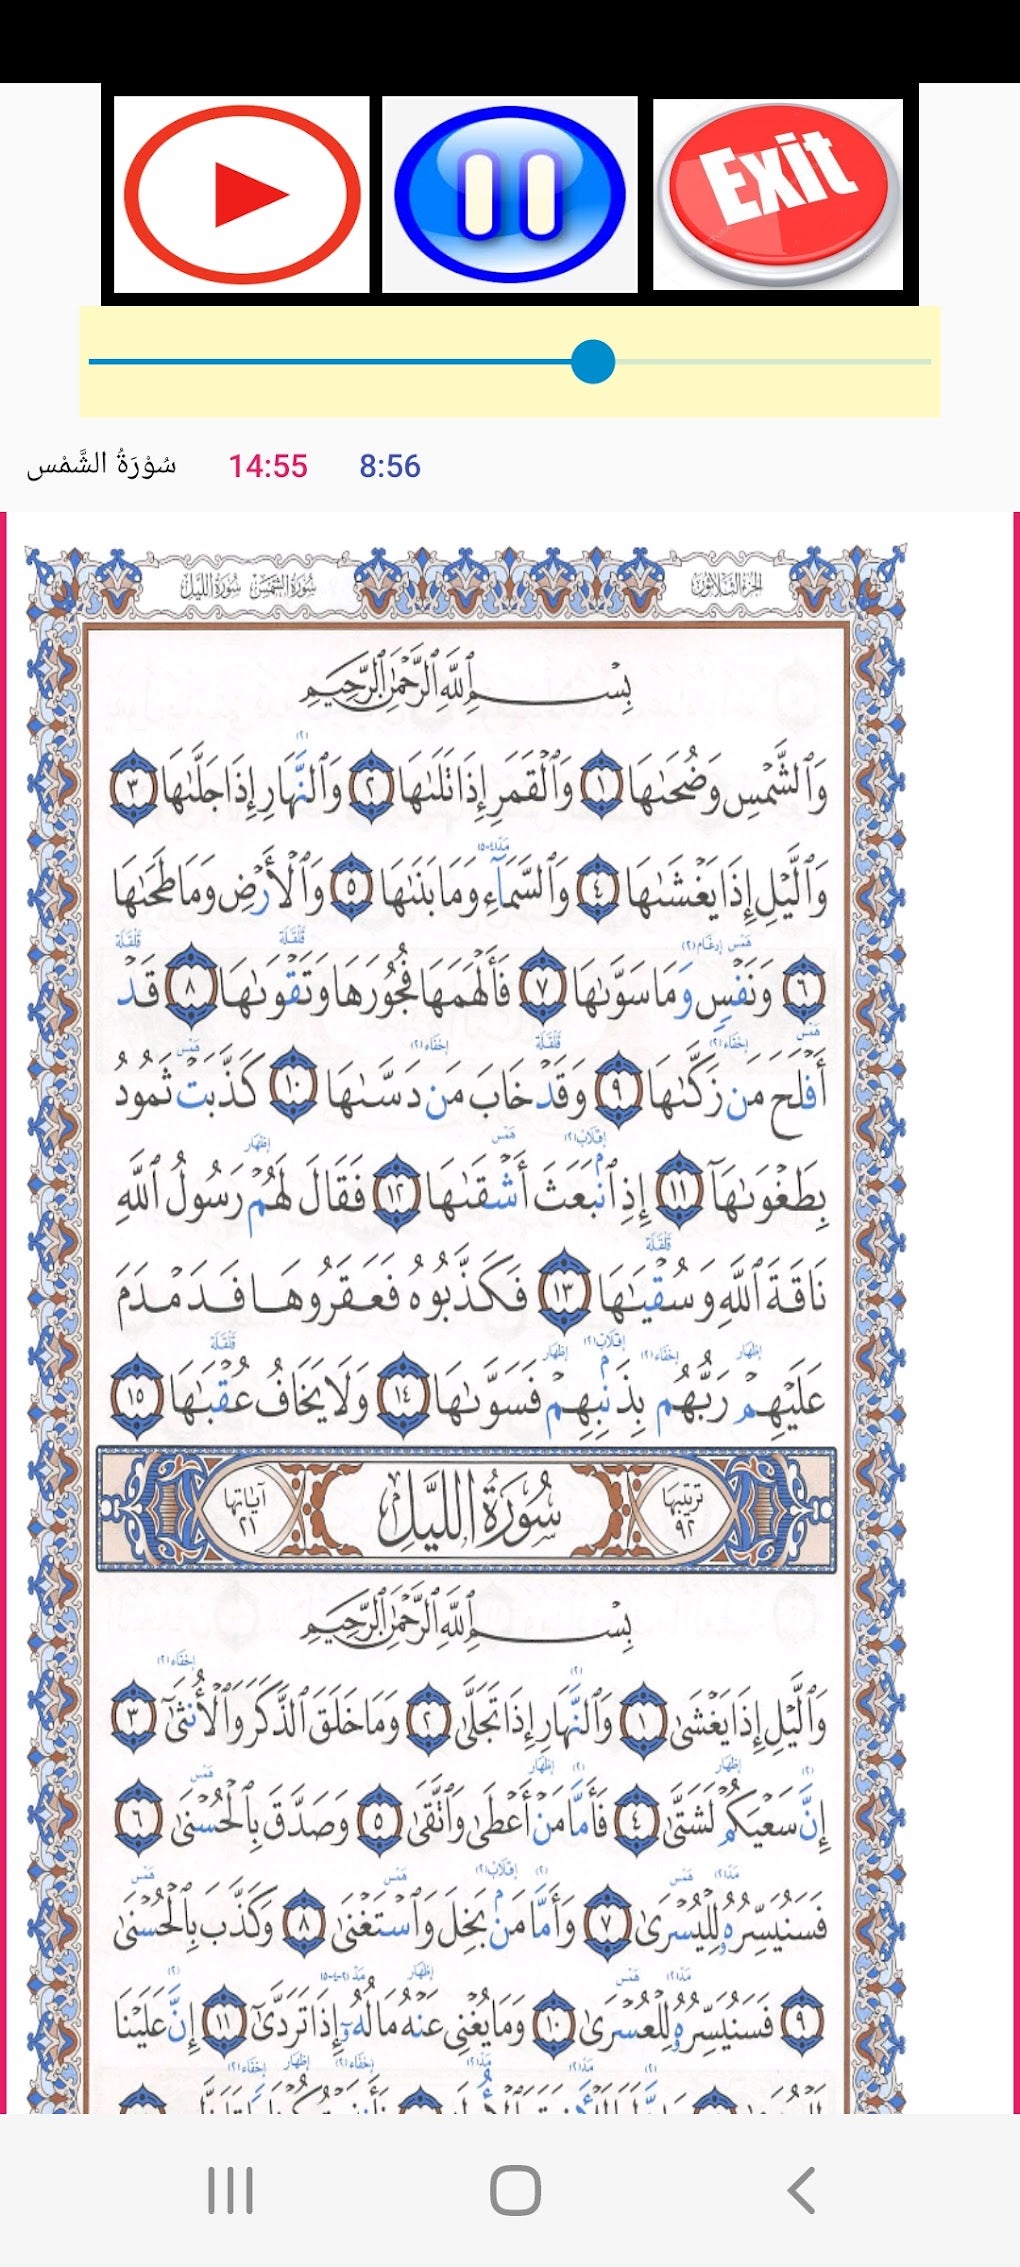 Exit
سُوْرَةُ الشَّمْس 14:55 8:56
الجزء الثلاثون سُورَةُ الشَّمْسِ سُورَةُ اللَّيْل
بِسْمِ ٱللَّهِ ٱلرَّحْمَٰنِ ٱلرَّحِيمِ
وَٱلشَّمْسِ وَضُحَىٰهَا ١ وَٱلْقَمَرِ إِذَا تَلَىٰهَا ٢ وَٱلنَّهَارِ إِذَا جَلَّىٰهَا ٣
وَٱلَّيْلِ إِذَا يَغْشَىٰهَا ٤ وَٱلسَّمَآءِ وَمَا بَنَىٰهَا ٥ وَٱلْأَرْضِ وَمَا طَحَىٰهَا
٦ وَنَفْسٍ وَمَا سَوَّىٰهَا ٧ فَأَلْهَمَهَا فُجُورَهَا وَتَقْوَىٰهَا ٨ قَدْ
أَفْلَحَ مَن زَكَّىٰهَا ٩ وَقَدْ خَابَ مَن دَسَّىٰهَا ١٠ كَذَّبَتْ ثَمُودُ
بِطَغْوَىٰهَآ ١١ إِذِ ٱنۢبَعَثَ أَشْقَىٰهَا ١٢ فَقَالَ لَهُمْ رَسُولُ ٱللَّهِ
نَاقَةَ ٱللَّهِ وَسُقْيَٰهَا ١٣ فَكَذَّبُوهُ فَعَقَرُوهَا فَدَمْدَمَ
عَلَيْهِمْ رَبُّهُم بِذَنۢبِهِمْ فَسَوَّىٰهَا ١٤ وَلَا يَخَافُ عُقْبَٰهَا ١٥
ترتيبها ٩٢ سُورَةُ اللَّيْلِ آياتها ٢١
بِسْمِ ٱللَّهِ ٱلرَّحْمَٰنِ ٱلرَّحِيمِ
وَٱلَّيْلِ إِذَا يَغْشَىٰ ١ وَٱلنَّهَارِ إِذَا تَجَلَّىٰ ٢ وَمَا خَلَقَ ٱلذَّكَرَ وَٱلْأُنثَىٰٓ ٣
إِنَّ سَعْيَكُمْ لَشَتَّىٰ ٤ فَأَمَّا مَنْ أَعْطَىٰ وَٱتَّقَىٰ ٥ وَصَدَّقَ بِٱلْحُسْنَىٰ ٦
فَسَنُيَسِّرُهُۥ لِلْيُسْرَىٰ ٧ وَأَمَّا مَنۢ بَخِلَ وَٱسْتَغْنَىٰ ٨ وَكَذَّبَ بِٱلْحُسْنَىٰ
٩ فَسَنُيَسِّرُهُۥ لِلْعُسْرَىٰ ١٠ وَمَا يُغْنِى عَنْهُ مَالُهُۥٓ إِذَا تَرَدَّىٰٓ ١١ إِنَّ عَلَيْنَا